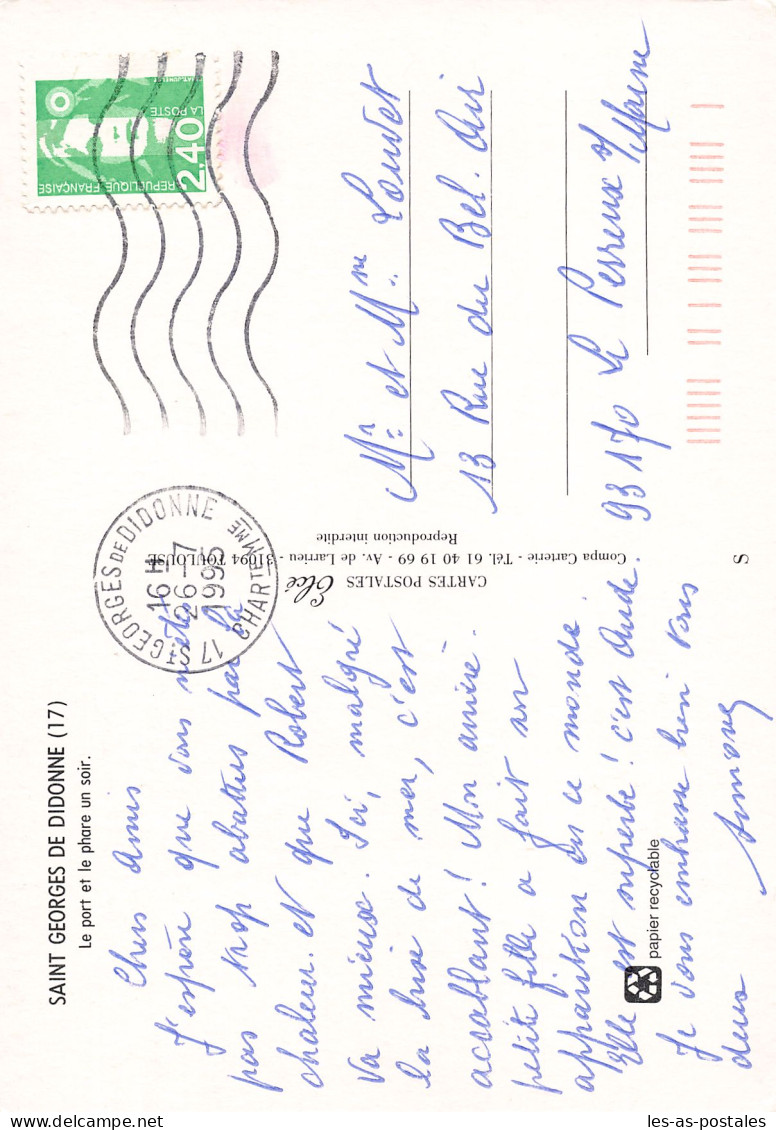 SAINT GEORGES DE DIDONNE (17)
Le port et le phare un soir.
Chers Amis
J'espère que vous n'êtes
pas trop abattus par la
chaleur. et que Robert
va mieux. Ici, malgré
la brise de mer, c'est
accablant! Mon arrière.
petite fille a fait son
apparition en ce monde.
Elle est superbe! c'est Aude.
Je vous embrasse bien tous
deux
Simone
papier recyclable
CARTES POSTALES Elcé
Compa Carterie - Tél. 61 40 19 69 - Av. de Larrieu - 31094 TOULOUSE
Reproduction interdite
17 ST GEORGES DE DIDONNE
16 H
26 - 7
1995
CHARTE MME
2,40
LA POSTE
REPUBLIQUE FRANÇAISE
Mr et Mme Louvet
13 Rue du Bel. Air
93170 Le Perreux s/Marne
S
les-as-postales